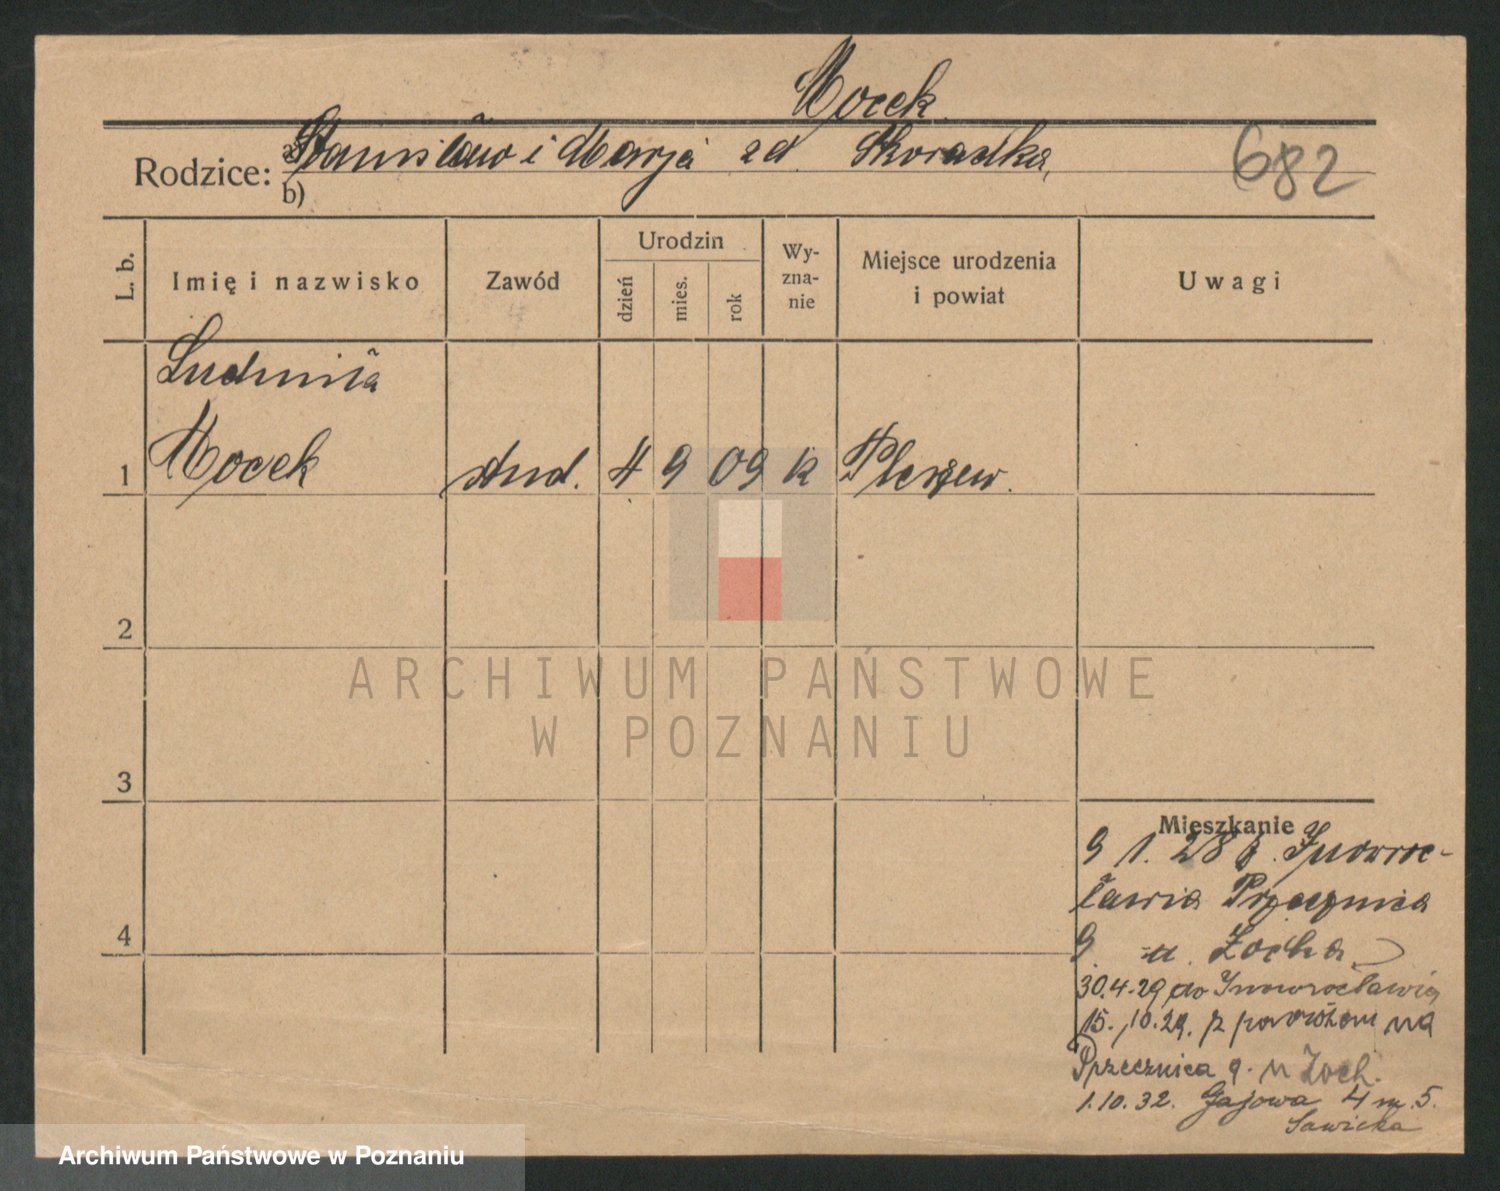 Mocek
Rodzice: a) Stanisław i Marja zd Skoracka,
b)
682
L. b.
Imię i nazwisko
Zawód
Urodzin
dzień
mies.
rok
Wy-
zna-
nie
Miejsce urodzenia
i powiat
Uwagi
Ludmiła
1 Mocek stud. 4 9 09 k Pleszew.
2
3
4
Mieszkanie
9 1. 28 z. Inowroc-
ławia Przecznica
9. u. Żocha
30.4.29 do Inowrocławia
15.10.29. z powrotem na
Przecznica 9. u Żoch.
1.10.32. Gajowa 4 m. 5.
Sawicka
ARCHIWUM PAŃSTWOWE
W POZNANIU
Archiwum Państwowe w Poznaniu